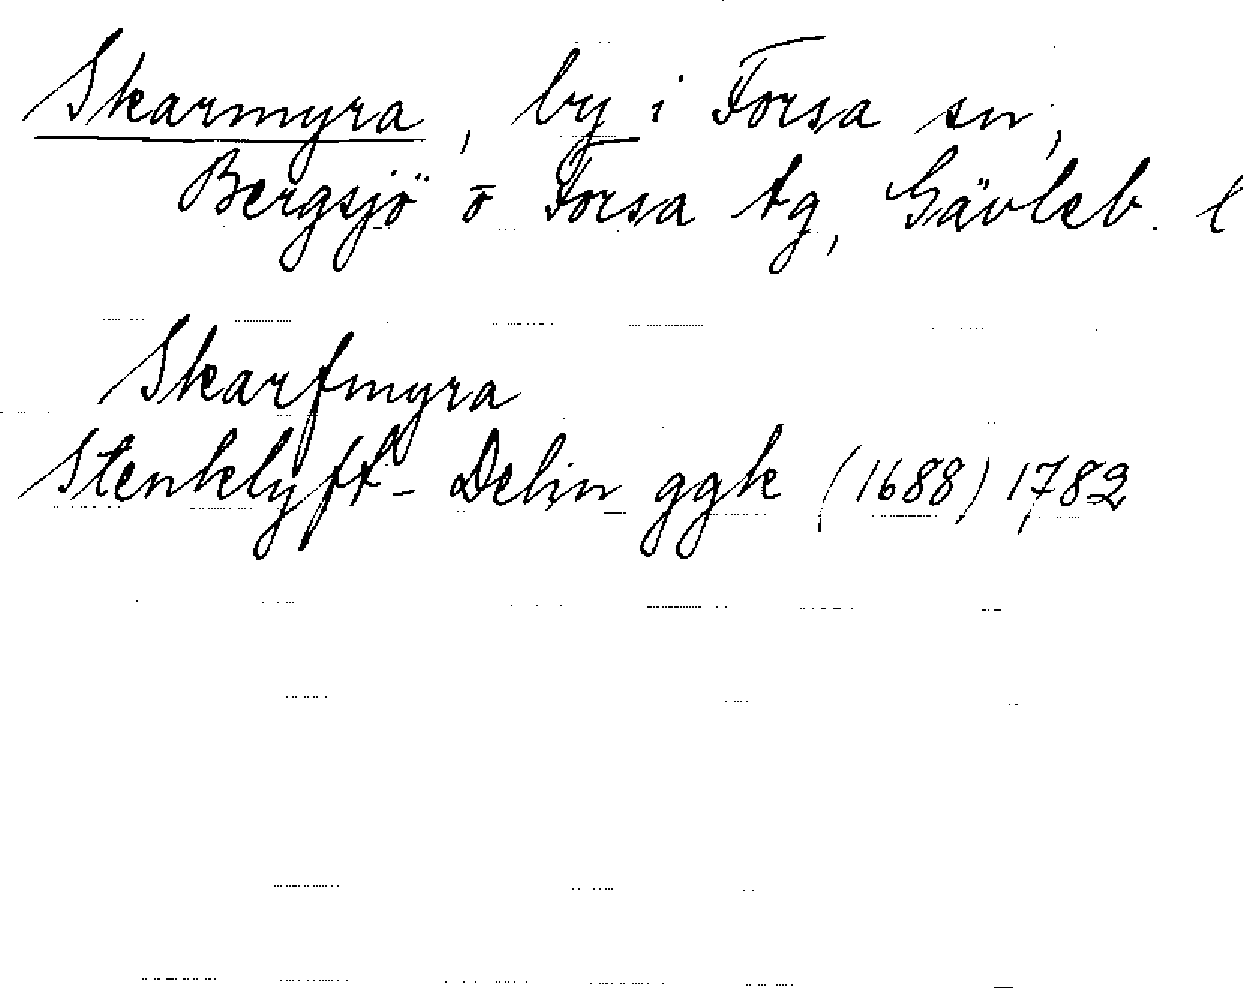 Skarmyra, by i Forsa sn,
Bergsjö o Forsa tg, Gävleb. l
Skarfmyra
Stenklyft - Delin ggk (1688) 1782